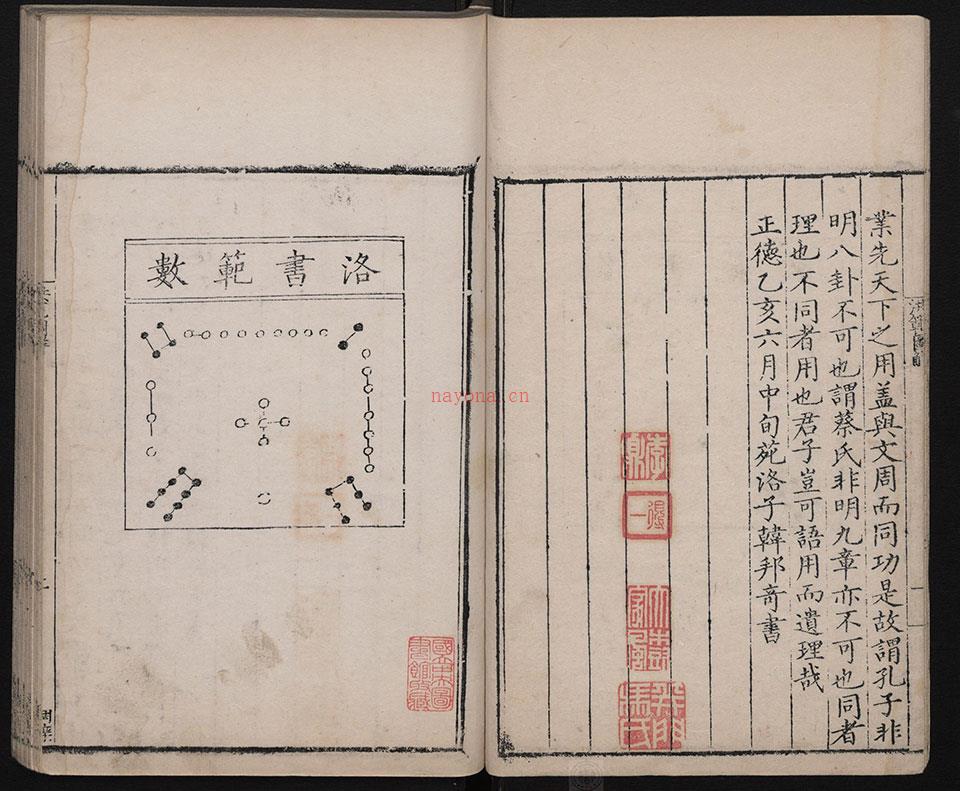 業先天下之用盖與文周而同功是故謂孔子非
明八卦不可也謂蔡氏非明九章亦不可也同者
理也不同者用也君子豈可語用而遺理哉
正德乙亥六月中旬苑洛子韓邦竒書
洛書範數
nayona.cn
國立中央圖
書館收藏